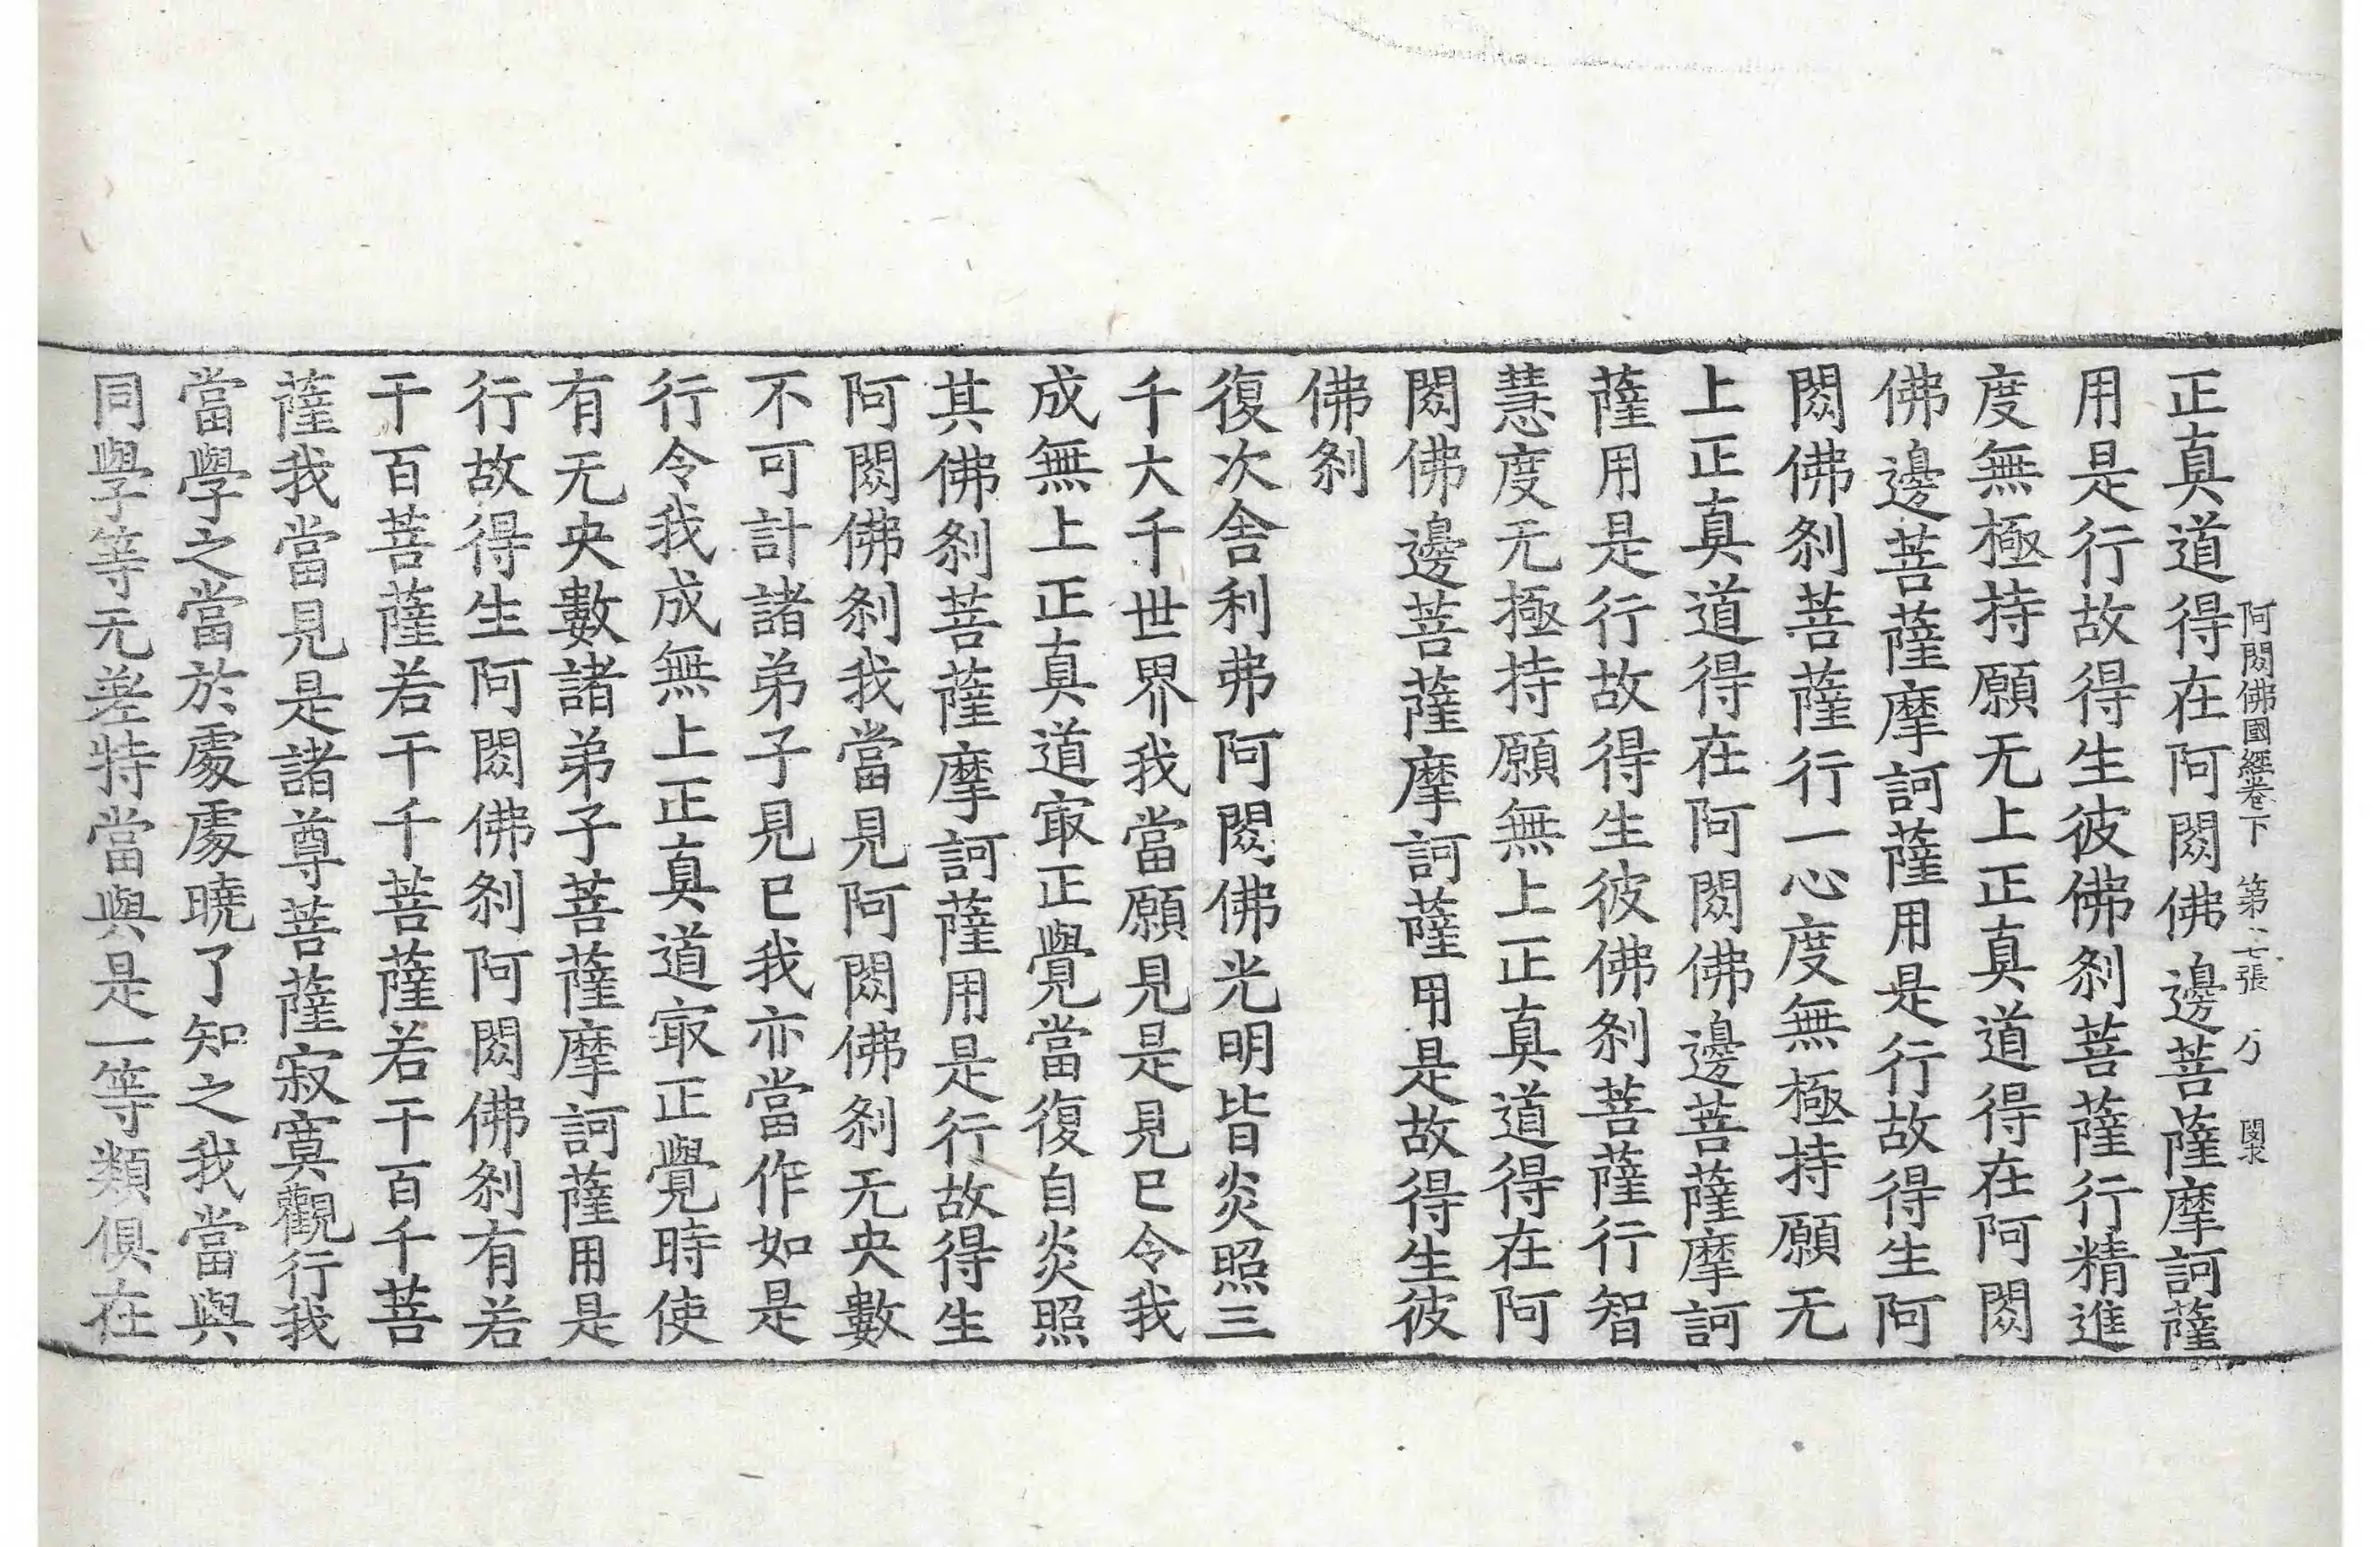 阿閦佛國經卷下　第七張　万　閔求
正真道得在阿閦佛邊菩薩摩訶薩
用是行故得生彼佛刹菩薩行精進
度無極持願无上正真道得在阿閦
佛邊菩薩摩訶薩用是行故得生阿
閦佛刹菩薩行一心度無極持願无
上正真道得在阿閦佛邊菩薩摩訶
薩用是行故得生彼佛刹菩薩行智
慧度无極持願無上正真道得在阿
閦佛邊菩薩摩訶薩用是故得生彼
佛刹
復次舍利弗阿閦佛光明皆炎照三
千大千世界我當願見是見已令我
成無上正真道㝡正覺當復自炎照
其佛刹菩薩摩訶薩用是行故得生
阿閦佛刹我當見阿閦佛刹无央數
不可計諸弟子見已我亦當作如是
行令我成無上正真道㝡正覺時使
有无央數諸弟子菩薩摩訶薩用是
行故得生阿閦佛刹阿閦佛刹有若
干百菩薩若干千菩薩若干百千菩
薩我當見是諸尊菩薩寂寞觀行我
當學之當於處處曉了知之我當與
同學等无差特當與是一等類俱在